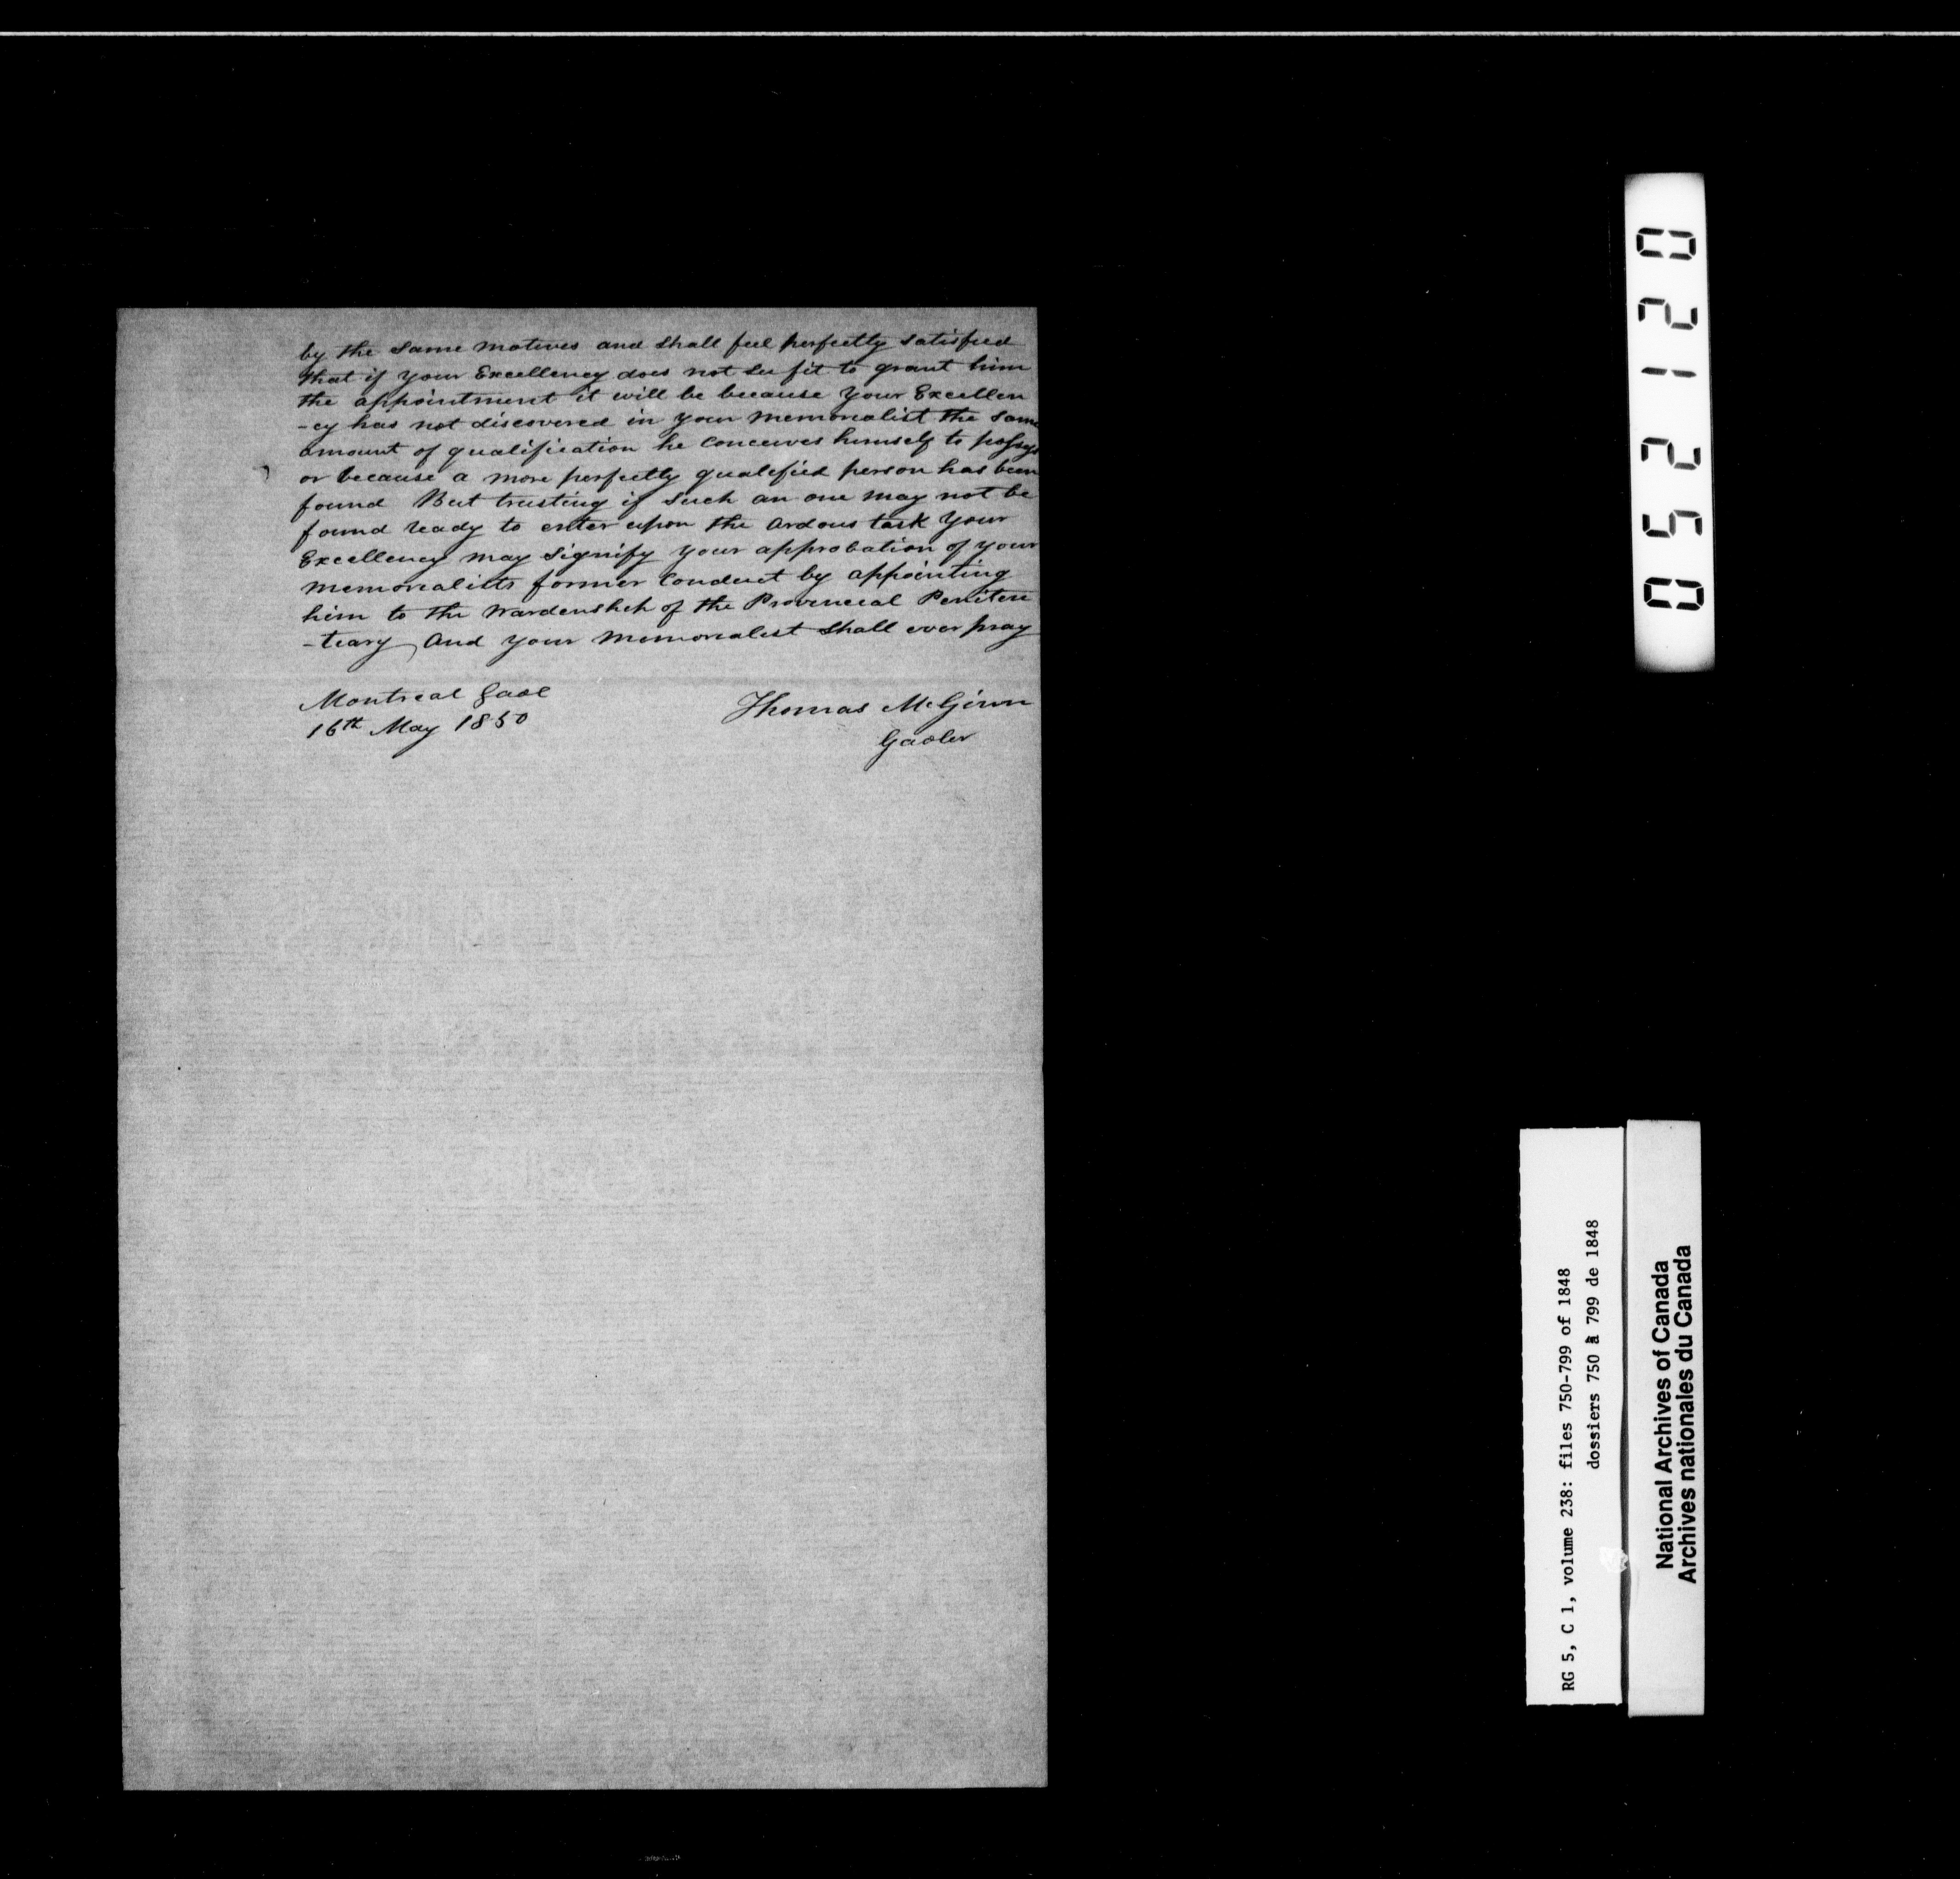 by the same motives and shall feel perfectly satisfied
that if your Excellency does not see fit to grant him
the appointment it will be because your Excellen
-cy has not discovered in your memorialist the same
amount of qualification he conceives himself to possess
or because a more perfectly qualified person has been
found But trusting if such an one may not be
found ready to enter upon the ardous task your
Excellency may signify your approbation of your
memorialists former conduct by appointing
him to the Wardenship of the Provincial Peniten
-tiary And your memorialist shall ever pray
Montreal Gaol
16th May 1850
Thomas McGinn
Gaoler
052120
RG 5, C 1, volume 238: files 750-799 of 1848
dossiers 750 à 799 de 1848
National Archives of Canada
Archives nationales du Canada